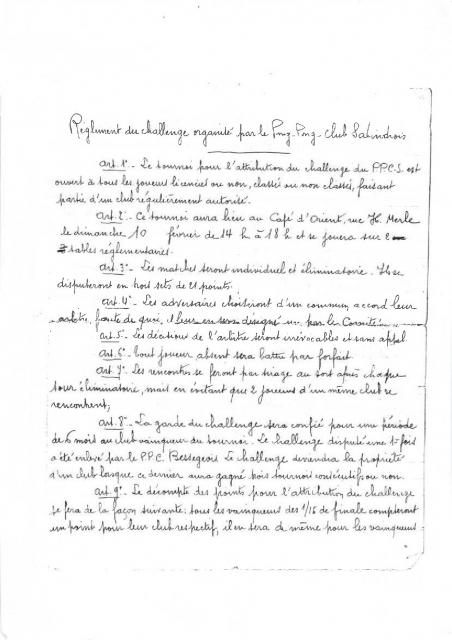 Règlement du challenge organisé par le Ping-Pong-Club Salindrois
Art. 1° - Le tournoi pour l'attribution du challenge du P.P.C.S. est
ouvert à tous les joueurs licenciés ou non, classés ou non classés, faisant
partie d'un club régulièrement autorisé.
Art. 2° - Ce tournoi aura lieu au Café d'Orient, rue H. Merle
le dimanche 10 février de 14 h à 18 h et se jouera sur 2
tables réglementaires.
Art. 3° - Les matches seront individuel et éliminatoire. Ils se
disputeront en trois sets de 21 points.
Art. 4° - Les adversaires choisiront d'un commun accord leur
arbitre, faute de quoi, il leur en sera désigné un par le Comité.
Art. 5° - Les décisions de l'arbitre seront irrévocables et sans appel
Art. 6° - tout joueur absent sera battu par forfait.
Art. 7° - Les rencontres se feront par tirage au sort après chaque
tour éliminatoire, mais en évitant que 2 joueurs d'un même club se
rencontrent;
Art. 8° - La garde du challenge sera confié pour une période
de 6 mois au club vainqueur du tournoi. Le challenge disputé une 1e fois
a été enlevé par le P.P.C. Bessegeois. Le challenge deviendra la propriété
d'un club lorsque ce dernier aura gagné trois tournois consécutifs ou non.
Art. 9° - Le décompte des points pour l'attribution du challenge
se fera de la façon suivante: tous les vainqueurs des 1/16 de finale compteront
un point pour leur club respectif, il en sera de même pour les vainqueurs